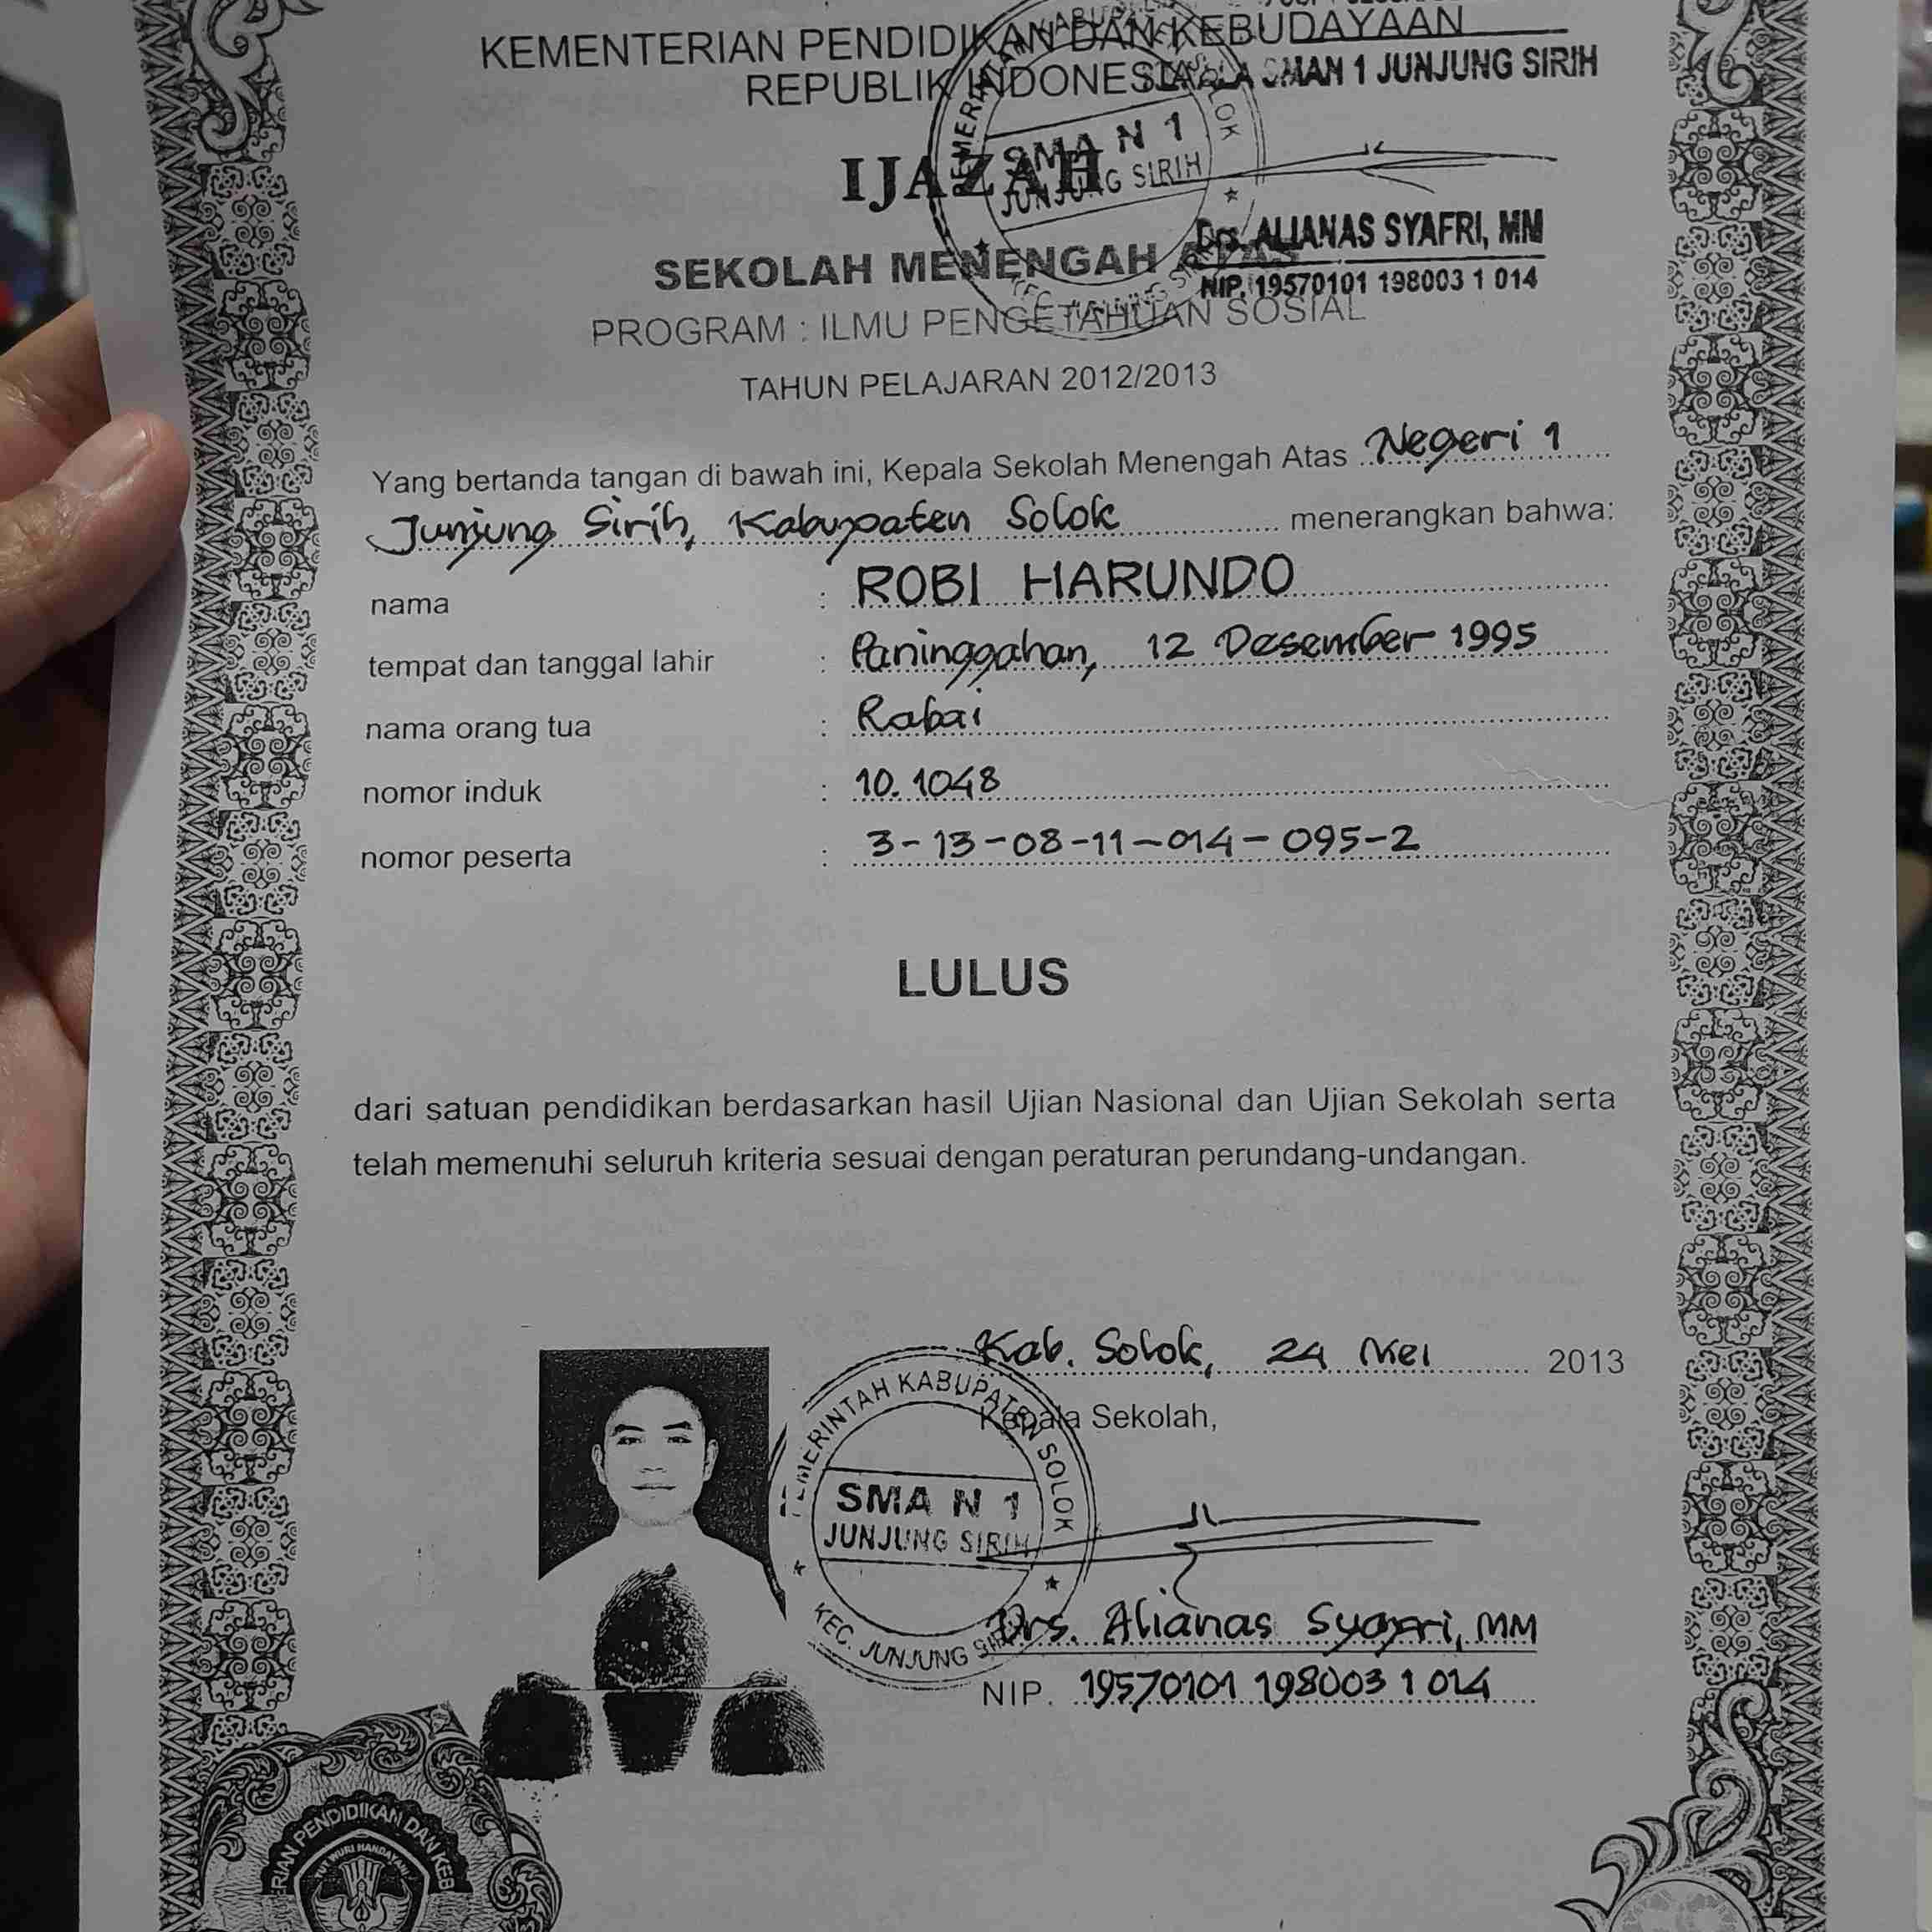 KEMENTERIAN PENDIDIKAN DAN KEBUDAYAAN
REPUBLIK INDONESIA
SMAN 1 JUNJUNG SIRIH
SMA N 1
JUNJUNG SIRIH
IJAZAH
Drs. ALIANAS SYAFRI, MM
NIP. 19570101 198003 1 014
SEKOLAH MENENGAH ATAS
PROGRAM : ILMU PENGETAHUAN SOSIAL
TAHUN PELAJARAN 2012/2013
Yang bertanda tangan di bawah ini, Kepala Sekolah Menengah Atas Negeri 1
Junjung Sirih, Kabupaten Solok menerangkan bahwa:
nama : ROBI HARUNDO
tempat dan tanggal lahir : Paninggahan, 12 Desember 1995
nama orang tua : Rabai
nomor induk : 10.1048
nomor peserta : 3-13-08-11-014-095-2
LULUS
dari satuan pendidikan berdasarkan hasil Ujian Nasional dan Ujian Sekolah serta
telah memenuhi seluruh kriteria sesuai dengan peraturan perundang-undangan.
Kab. Solok, 24 Mei 2013
Kepala Sekolah,
PEMERINTAH KABUPATEN SOLOK
SMA N 1
JUNJUNG SIRIH
KEC. JUNJUNG SIRIH
Drs. Alianas Syafri, MM
NIP. 19570101 198003 1 014
PENDIDIKAN DAN KEB
WURI HANDAYANI